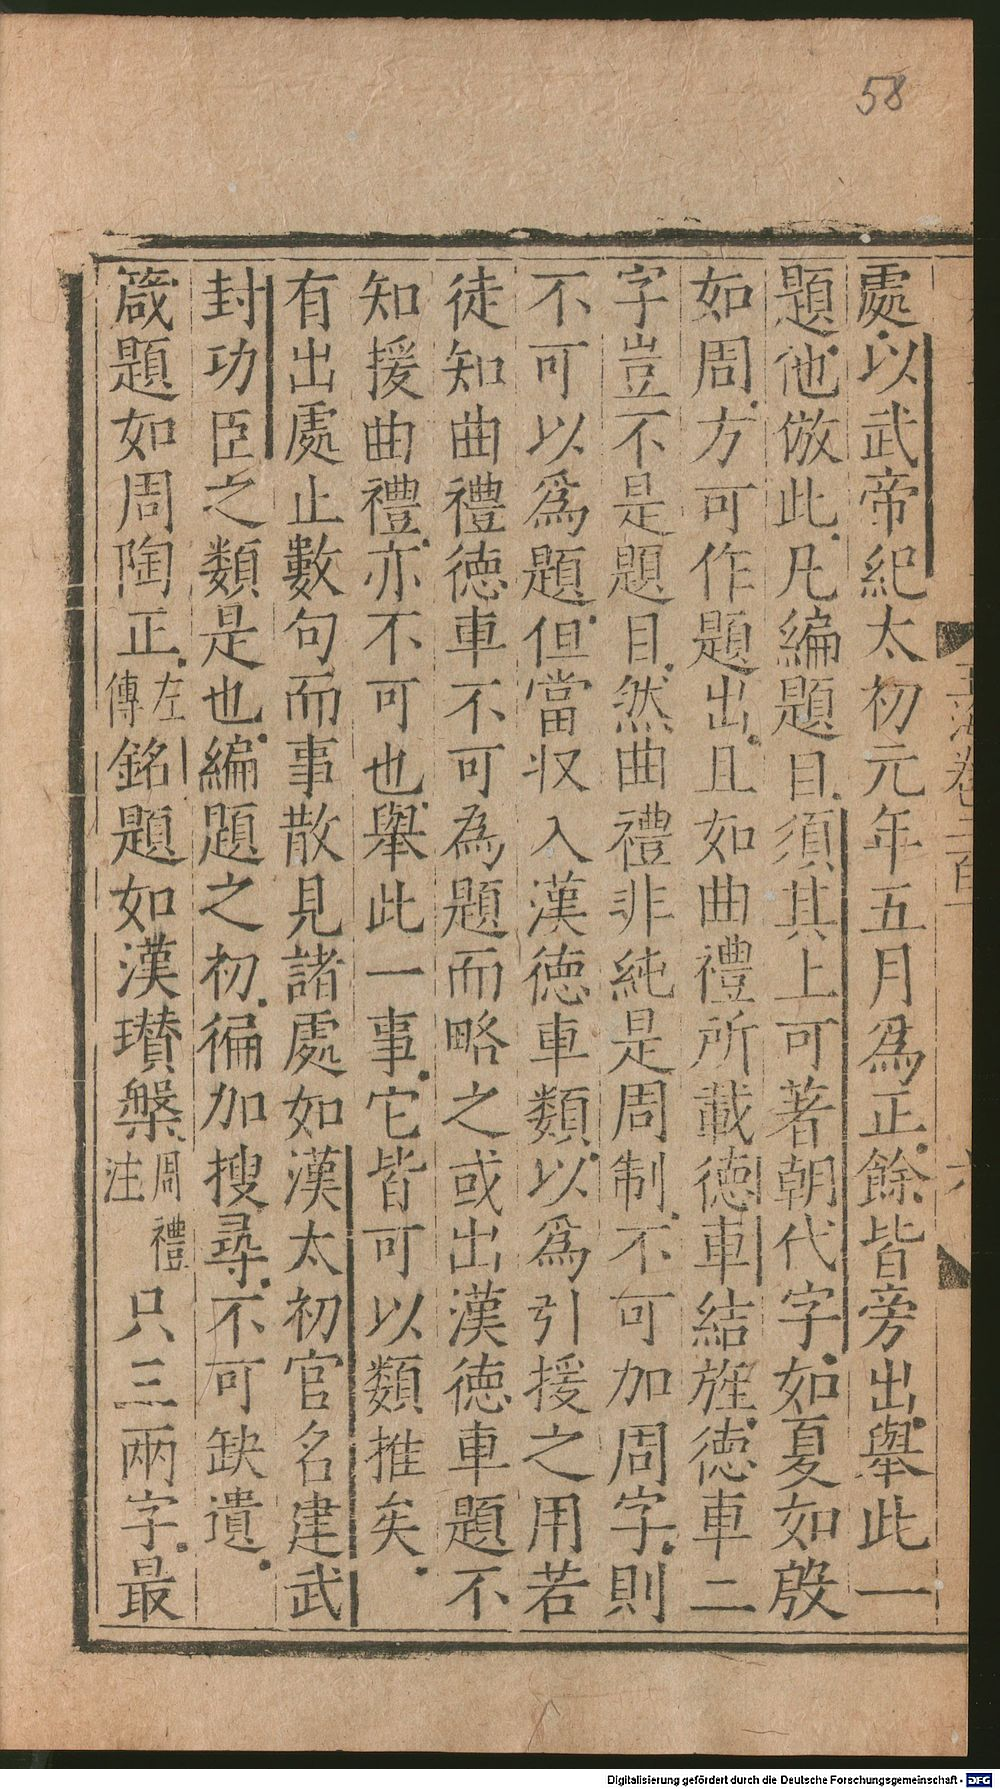 58
處以武帝紀太初元年五月爲正餘皆旁出舉此一
題他倣此凡編題目須其上可著朝代字如夏如殷
如周方可作題出且如曲禮所載德車結旌德車二
字豈不是題目然曲禮非純是周制不可加周字則
不可以爲題但當収入漢德車類以爲引援之用若
徒知曲禮德車不可為題而略之或出漢德車題不
知援曲禮亦不可也舉此一事它皆可以類推矣
有出處止數句而事散見諸處如漢太初官名建武
封功臣之類是也編題之初徧加搜尋不可缺遺
箴題如周陶正左傳銘題如漢瓚槃周禮注只三兩字最
玉海卷二百一
六
Digitalisierung gefördert durch die Deutsche Forschungsgemeinschaft - DFG